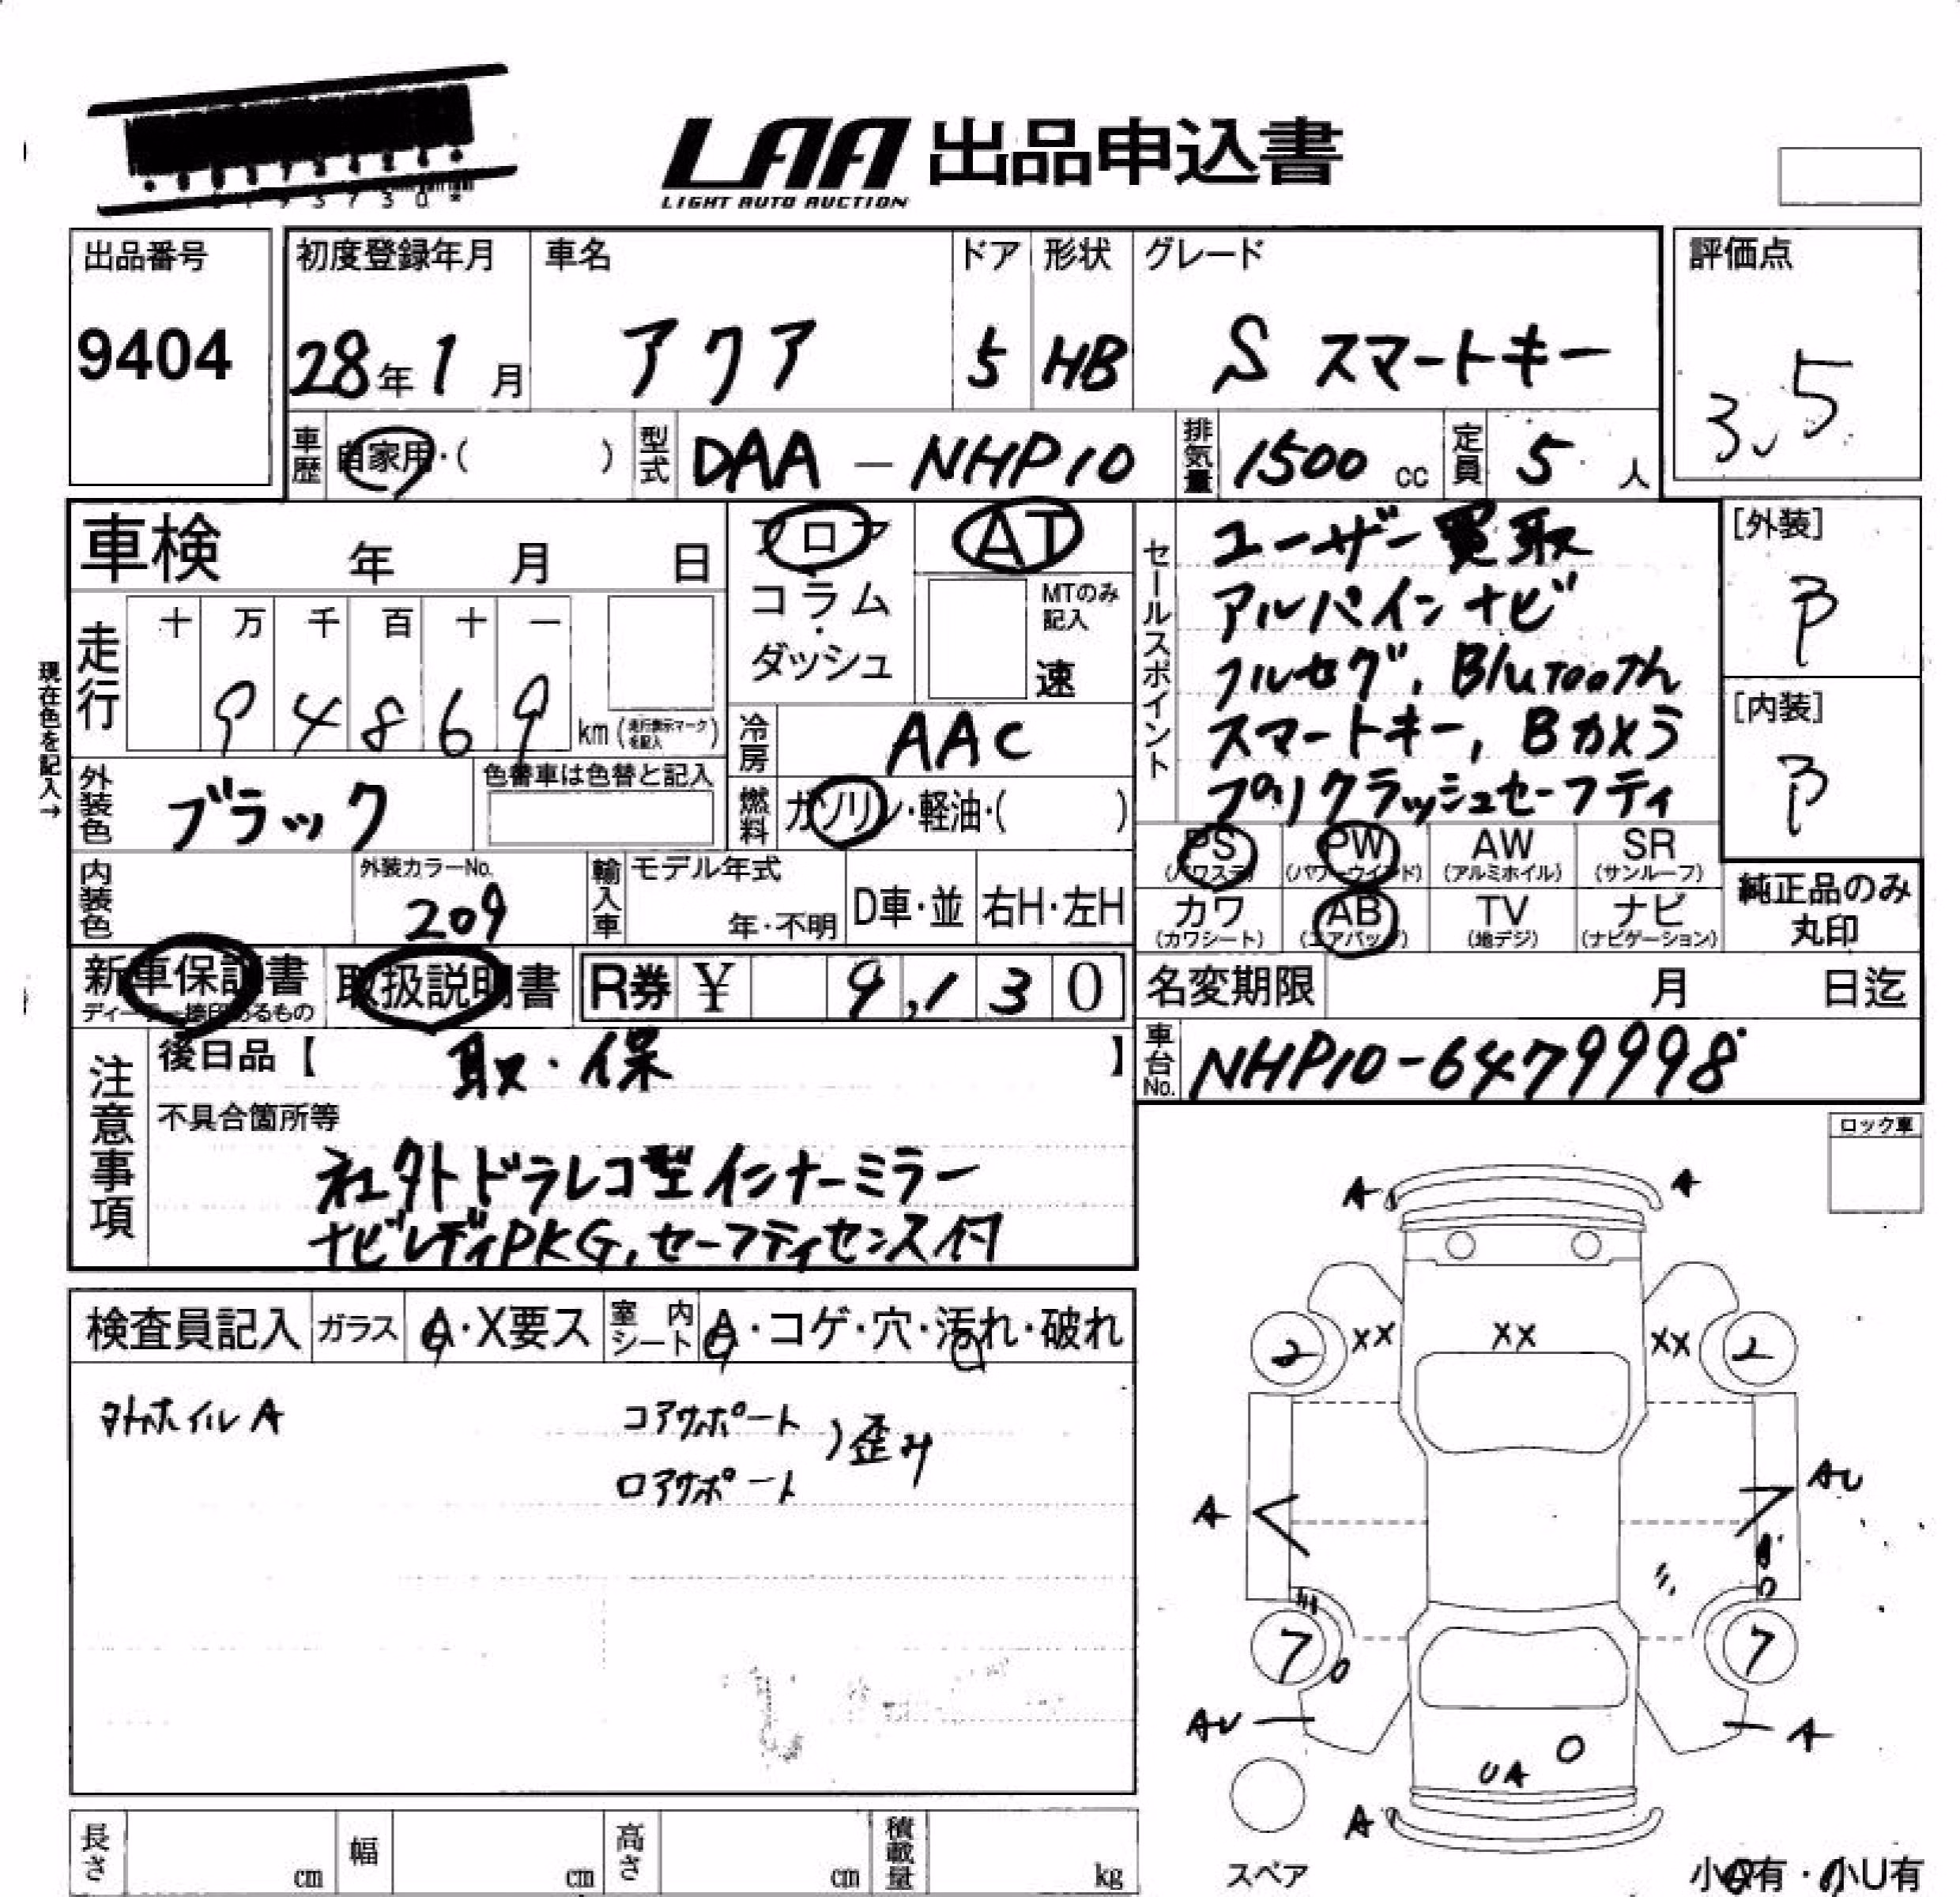 LAA 出品申込書
LIGHT AUTO AUCTION
出品番号
9404
初度登録年月
28年1月
車名
アクア
ドア
5
形状
HB
グレード
S スマートキー
評価点
3.5
車歴
自家用・( )
型式
DAA-NHP10
排気量
1500 cc
定員
5 人
車検 年 月 日
フロア
コラム・
ダッシュ
AT
MTのみ
記入
速
セールスポイント
ユーザー買取
アルパインナビ
フルセグ, Blutooth
スマートキー, Bカメラ
プリクラッシュセーフティ
[外装]
B
[内装]
B
現在色を記入→
走行
十 万 千 百 十 一
9 4 8 6 9
km (走行表示マークを記入)
冷房
AAC
外装色
ブラック
色替車は色替と記入
燃料
ガソリン・軽油・( )
内装色
外装カラーNo.
209
輸入車
モデル年式
年・不明
D車・並
右H・左H
PS
(パワステ)
PW
(パワーウインド)
AW
(アルミホイル)
SR
(サンルーフ)
カワ
(カワシート)
AB
(エアバッグ)
TV
(地デジ)
ナビ
(ナビゲーション)
純正品のみ
丸印
新車保証書
取扱説明書
R券 ¥ 9,130
名変期限 月 日迄
車台No.
NHP10-6479998
注意事項
後日品【 取・保 】
不具合箇所等
社外ドラレコ型インナーミラー
ナビレディPKG, セーフティセンス付
ロック車
検査員記入
ガラス
A・X要ス
室内シート
A・コゲ・穴・汚れ・破れ
ホイルA
コアサポート
ロアサポート
)歪み
A A
2 XX XX XX 2
A AU
7 7
AU A
UA
A
スペア
小A有・小U有
長さ cm
幅 cm
高さ cm
積載量 kg